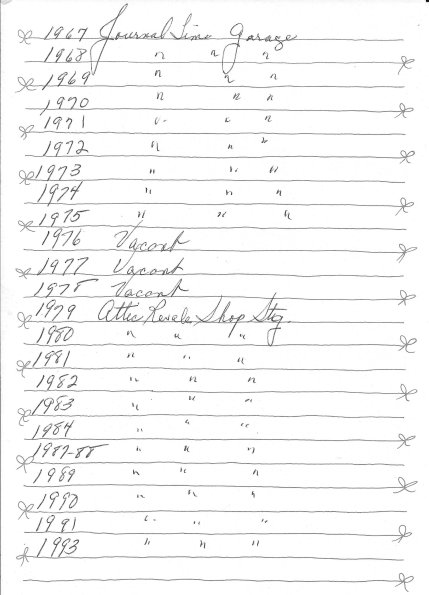 1967 Journal Time Garage
1968 " " "
1969 " " "
1970 " " "
1971 " " "
1972 " " "
1973 " " "
1974 " " "
1975 " " "
1976 Vacant
1977 Vacant
1978 Vacant
1979 Attic Resale Shop Stg.
1980 " " "
1981 " " "
1982 " " "
1983 " " "
1984 " " "
1987-88 " " "
1989 " " "
1990 " " "
1991 " " "
1993 " " "